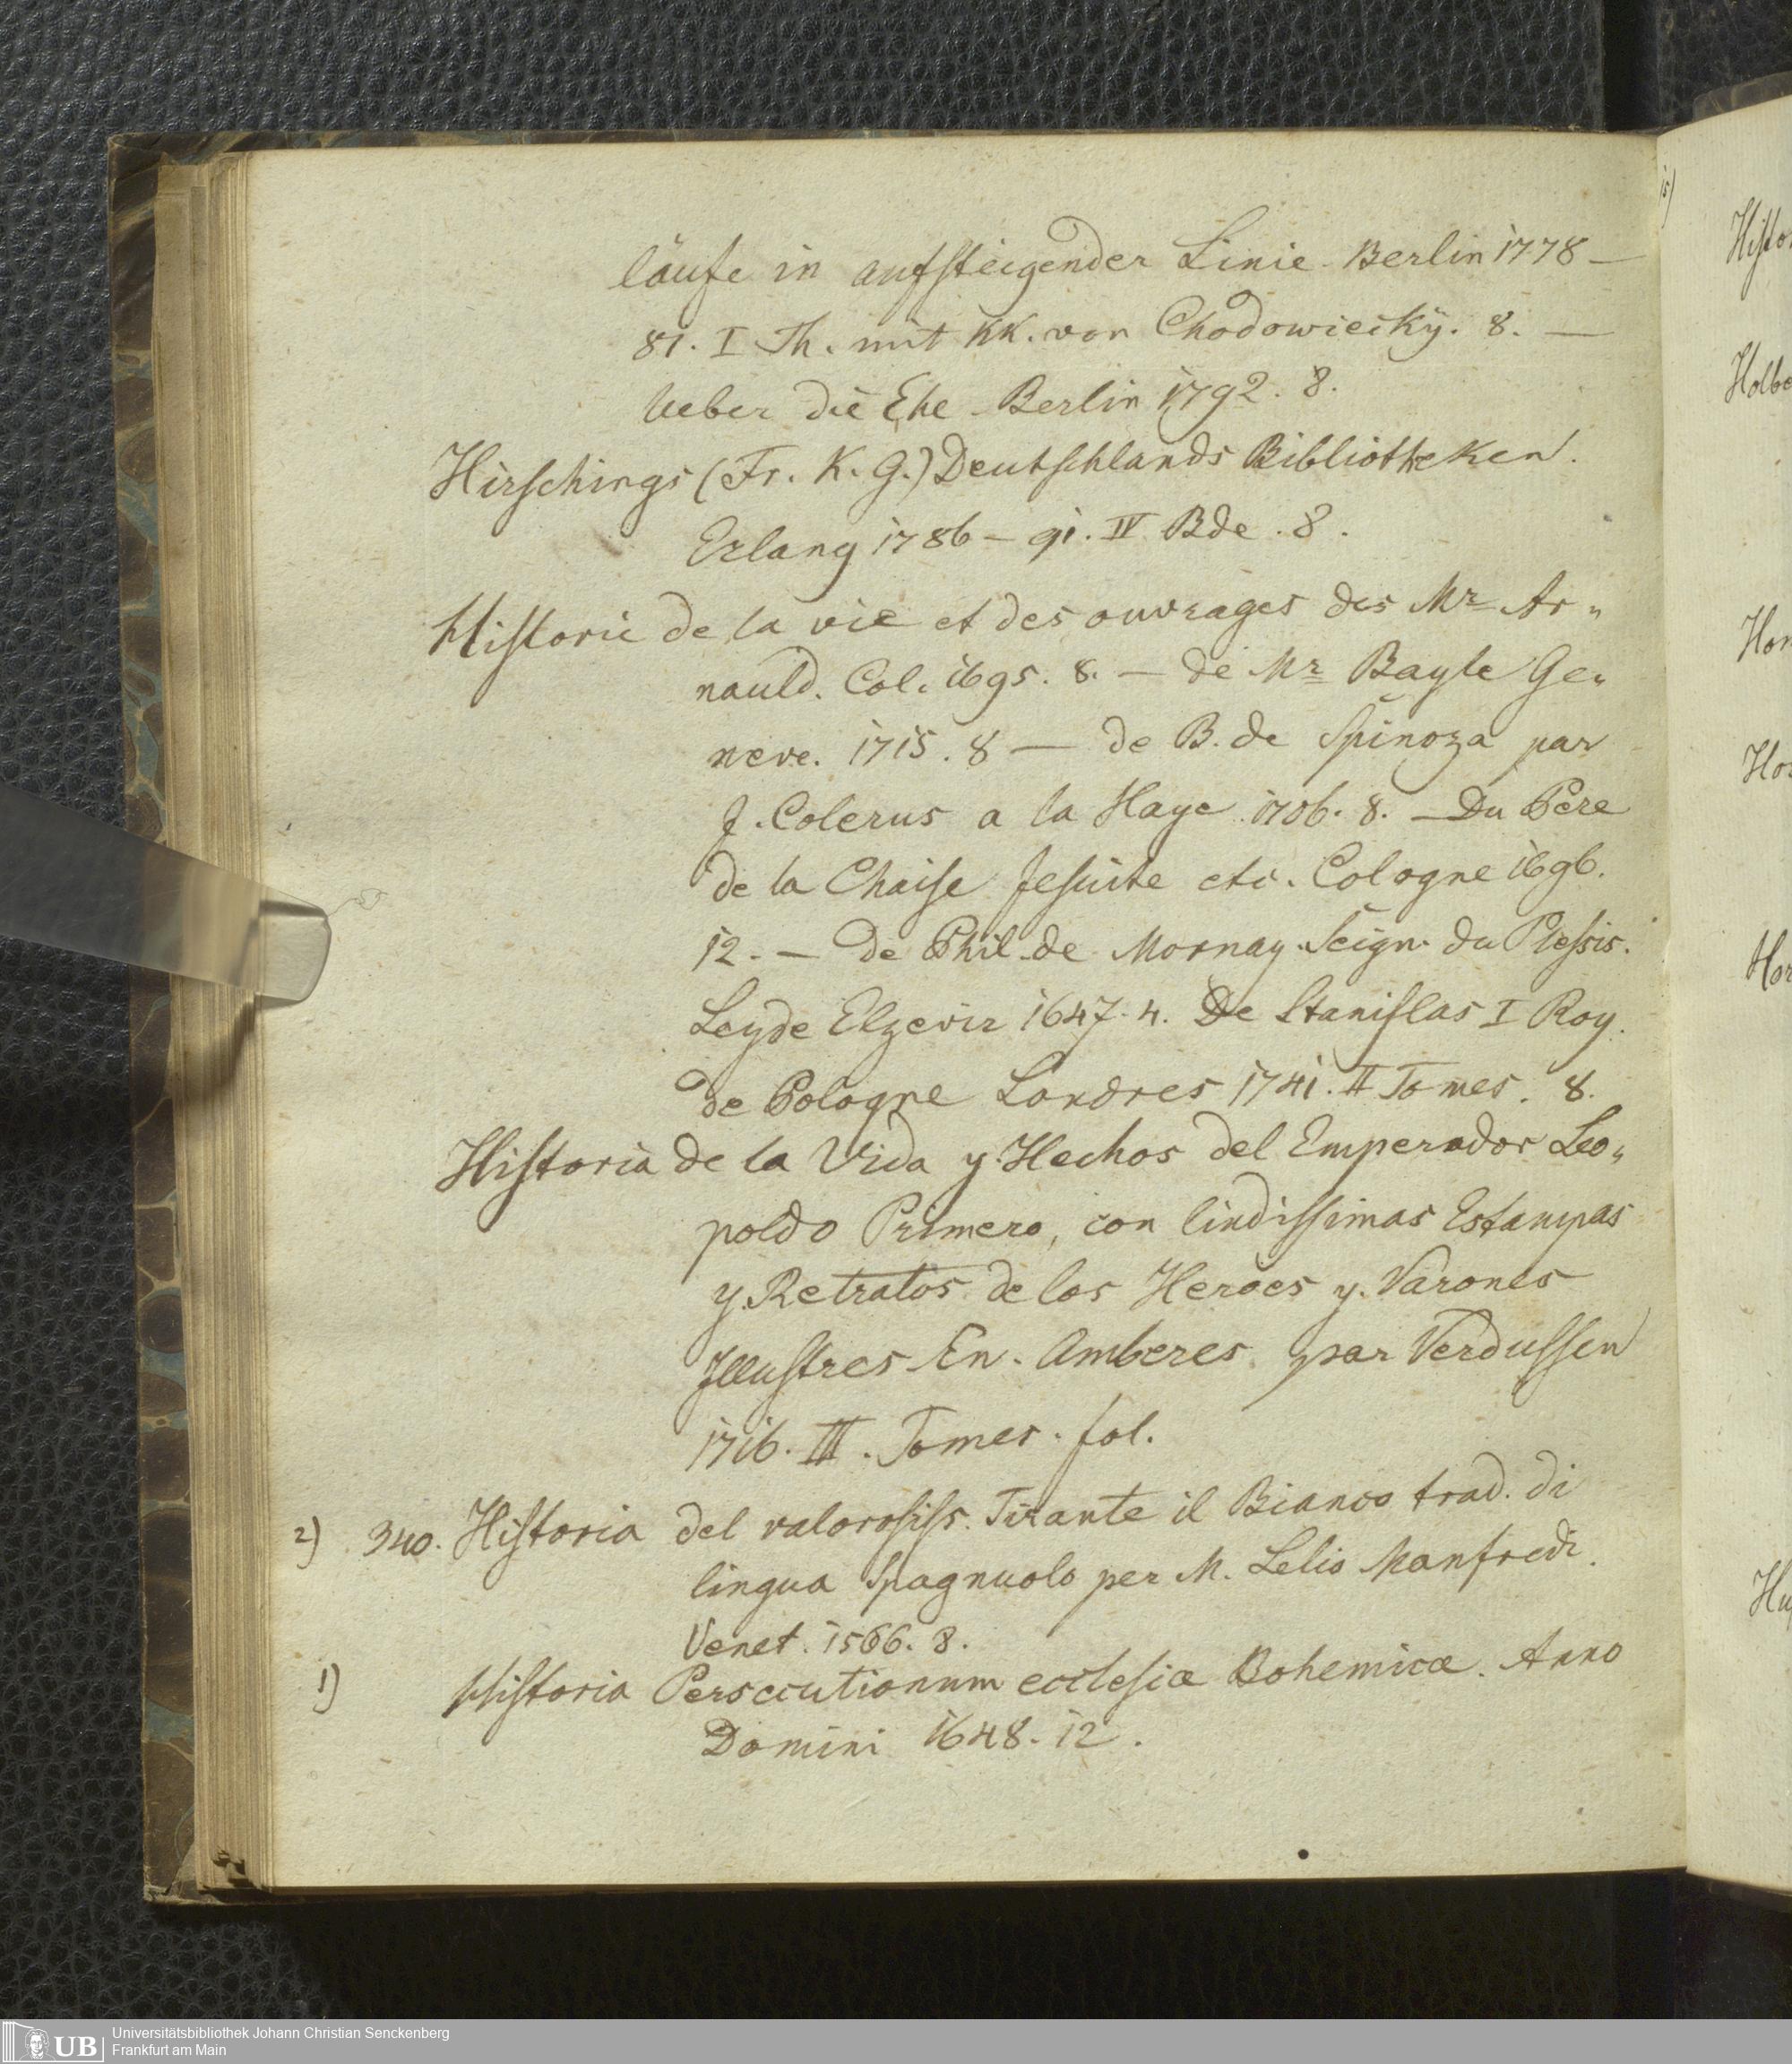 läufe in aufsteigender Linie Berlin 1778 —
81. I Th. mit KK. von Chodowiecky. 8. —
Ueber die Ehe Berlin 1792. 8.
Hirschings (Fr. K. G.) Deutschlands Bibliotheken.
Erlang 1786 — 91. IV Bde. 8.
Historie de la vie et des ouvrages des Mr Ar„
nauld. Col. 1695. 8. — de Mr Bayle Ge„
neve. 1715. 8 — de B. de Spinoza par
J. Colerus a la Haye 1706. 8. — Du Pere
de la Chaise Jesuite etc. Cologne 1696.
12. — De Phil. de Mornay Seign. du Plessis.
Leyde Elzevir 1647. 4. De Stanislas I Roy
de Pologne Londres 1741. II Tomes. 8.
Historia de la Vida y Hechos del Emperador Leo„
poldo Primero, con lindissimas Estampas
y Retratos de los Heroes y Varones
Illustres En. Amberes par Verdussen
1716. III. Tomes. fol.
2) 340. Historia del valorosiss. Tirante il Bianco trad. di
lingua Spagnuolo per M. Lelio Manfredi.
Venet. 1566. 8.
1) Historia Persecutionum ecclesiæ Bohemicæ. Anno
Domini 1648. 12.
15)
Histo
Holbe
Hor
Hor
Universitätsbibliothek Johann Christian Senckenberg
Frankfurt am Main
UB